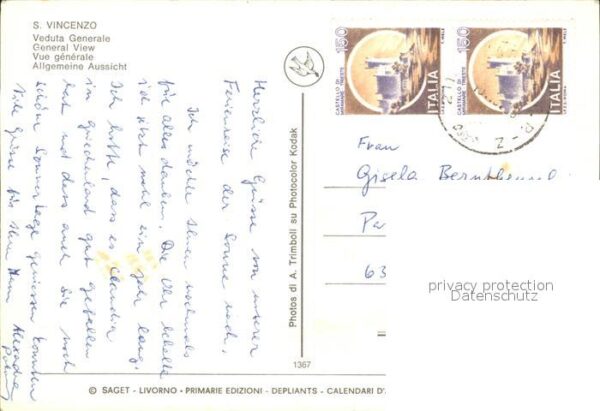 S. VINCENZO
Veduta Generale
General View
Vue générale
Allgemeine Aussicht
Herzliche Grüsse von unserer
Ferienreise der Sonne nach.
Ich möchte Ihnen nochmals
für alles danken. Die
ich jetzt wohl ein Jahr lang.
Ich hoffe, dass es Claudia
in Griechenland gut gefallen
hat und dass auch Sie noch
schöne Sommertage geniessen konnten
Viele Grüsse für Ihren Mann
Alexandra
Photos di A. Trimboli su Photocolor Kodak
1367
© SAGET - LIVORNO - PRIMARIE EDIZIONI - DEPLIANTS - CALENDARI D'
150
CASTELLO DI
MIRAMARE TRIESTE
ITALIA
150
CASTELLO DI
MIRAMARE TRIESTE
ITALIA
Frau
Gisela
63
privacy protection
Datenschutz